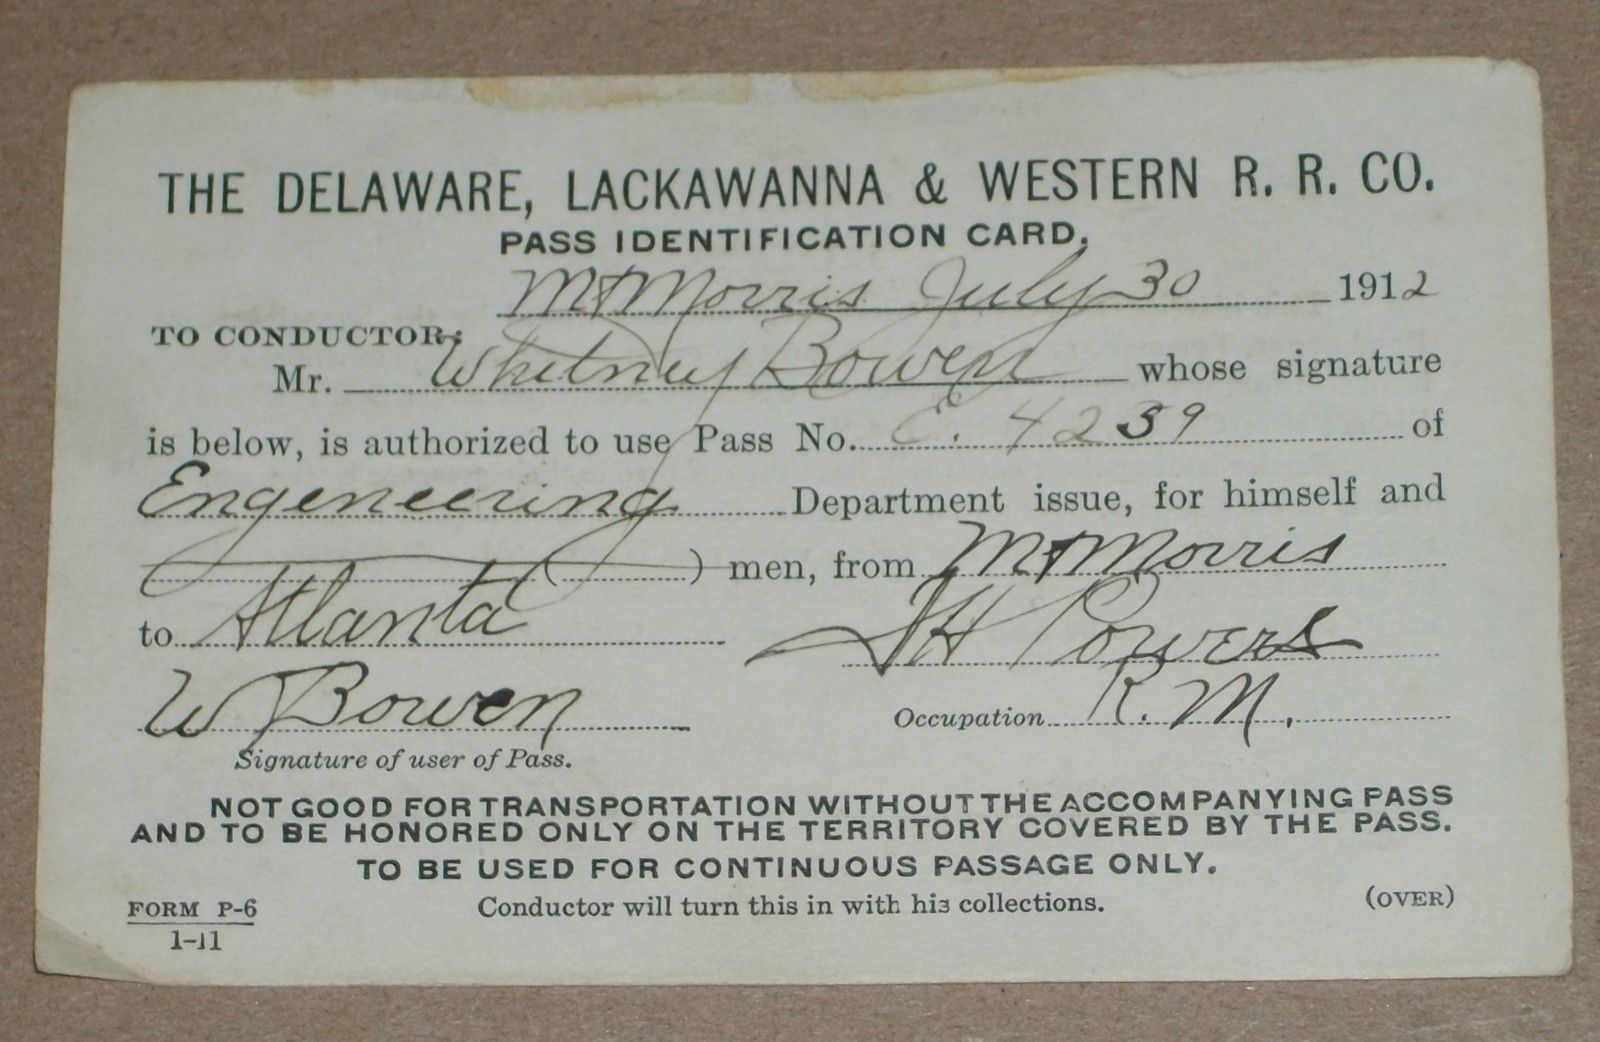 THE DELAWARE, LACKAWANNA & WESTERN R. R. CO.
PASS IDENTIFICATION CARD.
Mt Morris July 30 1912
TO CONDUCTOR:
Mr. Whitney Bowen whose signature
is below, is authorized to use Pass No. E. 4239 of
Engeneering Department issue, for himself and
( ) men, from Mt Morris
to Atlanta
H Powers
W Bowen
Occupation R. M.
Signature of user of Pass.
NOT GOOD FOR TRANSPORTATION WITHOUT THE ACCOMPANYING PASS
AND TO BE HONORED ONLY ON THE TERRITORY COVERED BY THE PASS.
TO BE USED FOR CONTINUOUS PASSAGE ONLY.
FORM P-6
1-11
Conductor will turn this in with his collections.
(OVER)